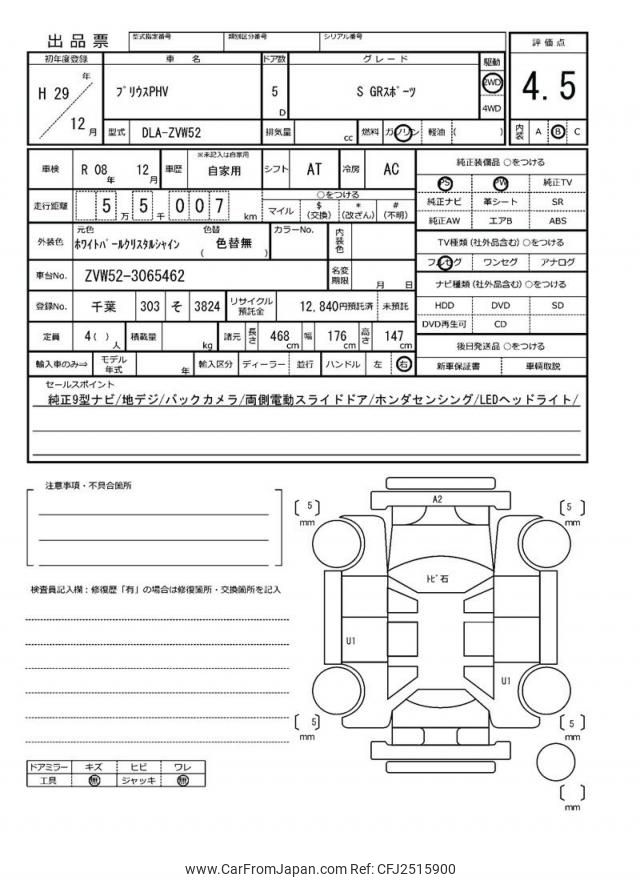 出品票
型式指定番号 類別区分番号 シリアル番号
初年度登録 車名 ドア数 グレード 駆動 評価点
H 29 年 12 月
プリウスPHV 5 D S GRスポーツ 2WD 4WD 4.5
型式 DLA-ZVW52 排気量 cc 燃料 ガソリン 軽油 ( ) 内装 A B C
車検 R 08 年 12 月 車歴 ※未記入は自家用 自家用 シフト AT 冷房 AC
純正装備品 ○をつける
PS PW 純正TV
純正ナビ 革シート SR
純正AW エアB ABS
走行距離 5 5 万 5 千 0 0 7 km ○をつける
マイル $ (交換) * (改ざん) # (不明)
外装色 元色 ホワイトパールクリスタルシャイン 色替 ( 色替無 ) カラーNo. 内装色
TV種類 (社外品含む) ○をつける
フルセグ ワンセグ アナログ
車台No. ZVW52-3065462 名変期限 月 日
ナビ種類 (社外品含む) ○をつける
HDD DVD SD
DVD再生可 CD
登録No. 千葉 303 そ 3824 リサイクル預託金 12,840円預託済 未預託
定員 4( ) 人 積載量 kg 諸元 長さ 468 cm 幅 176 cm 高さ 147 cm
後日発送品 ○をつける
新車保証書 車輌取説
輸入車のみ⇒ モデル年式 年 輸入区分 ディーラー 並行 ハンドル 左 右
セールスポイント
純正9型ナビ/地デジ/バックカメラ/両側電動スライドドア/ホンダセンシング/LEDヘッドライト/
注意事項・不具合箇所
検査員記入欄:修復歴「有」の場合は修復箇所・交換箇所を記入
[ 5 ] mm
A2
[ 5 ] mm
トビ石
U1
U1
[ 5 ] mm
[ 5 ] mm
[ ] mm
ドアミラー キズ ヒビ ワレ
工具 無 ジャッキ 無
www.CarFromJapan.com Ref: CFJ2515900